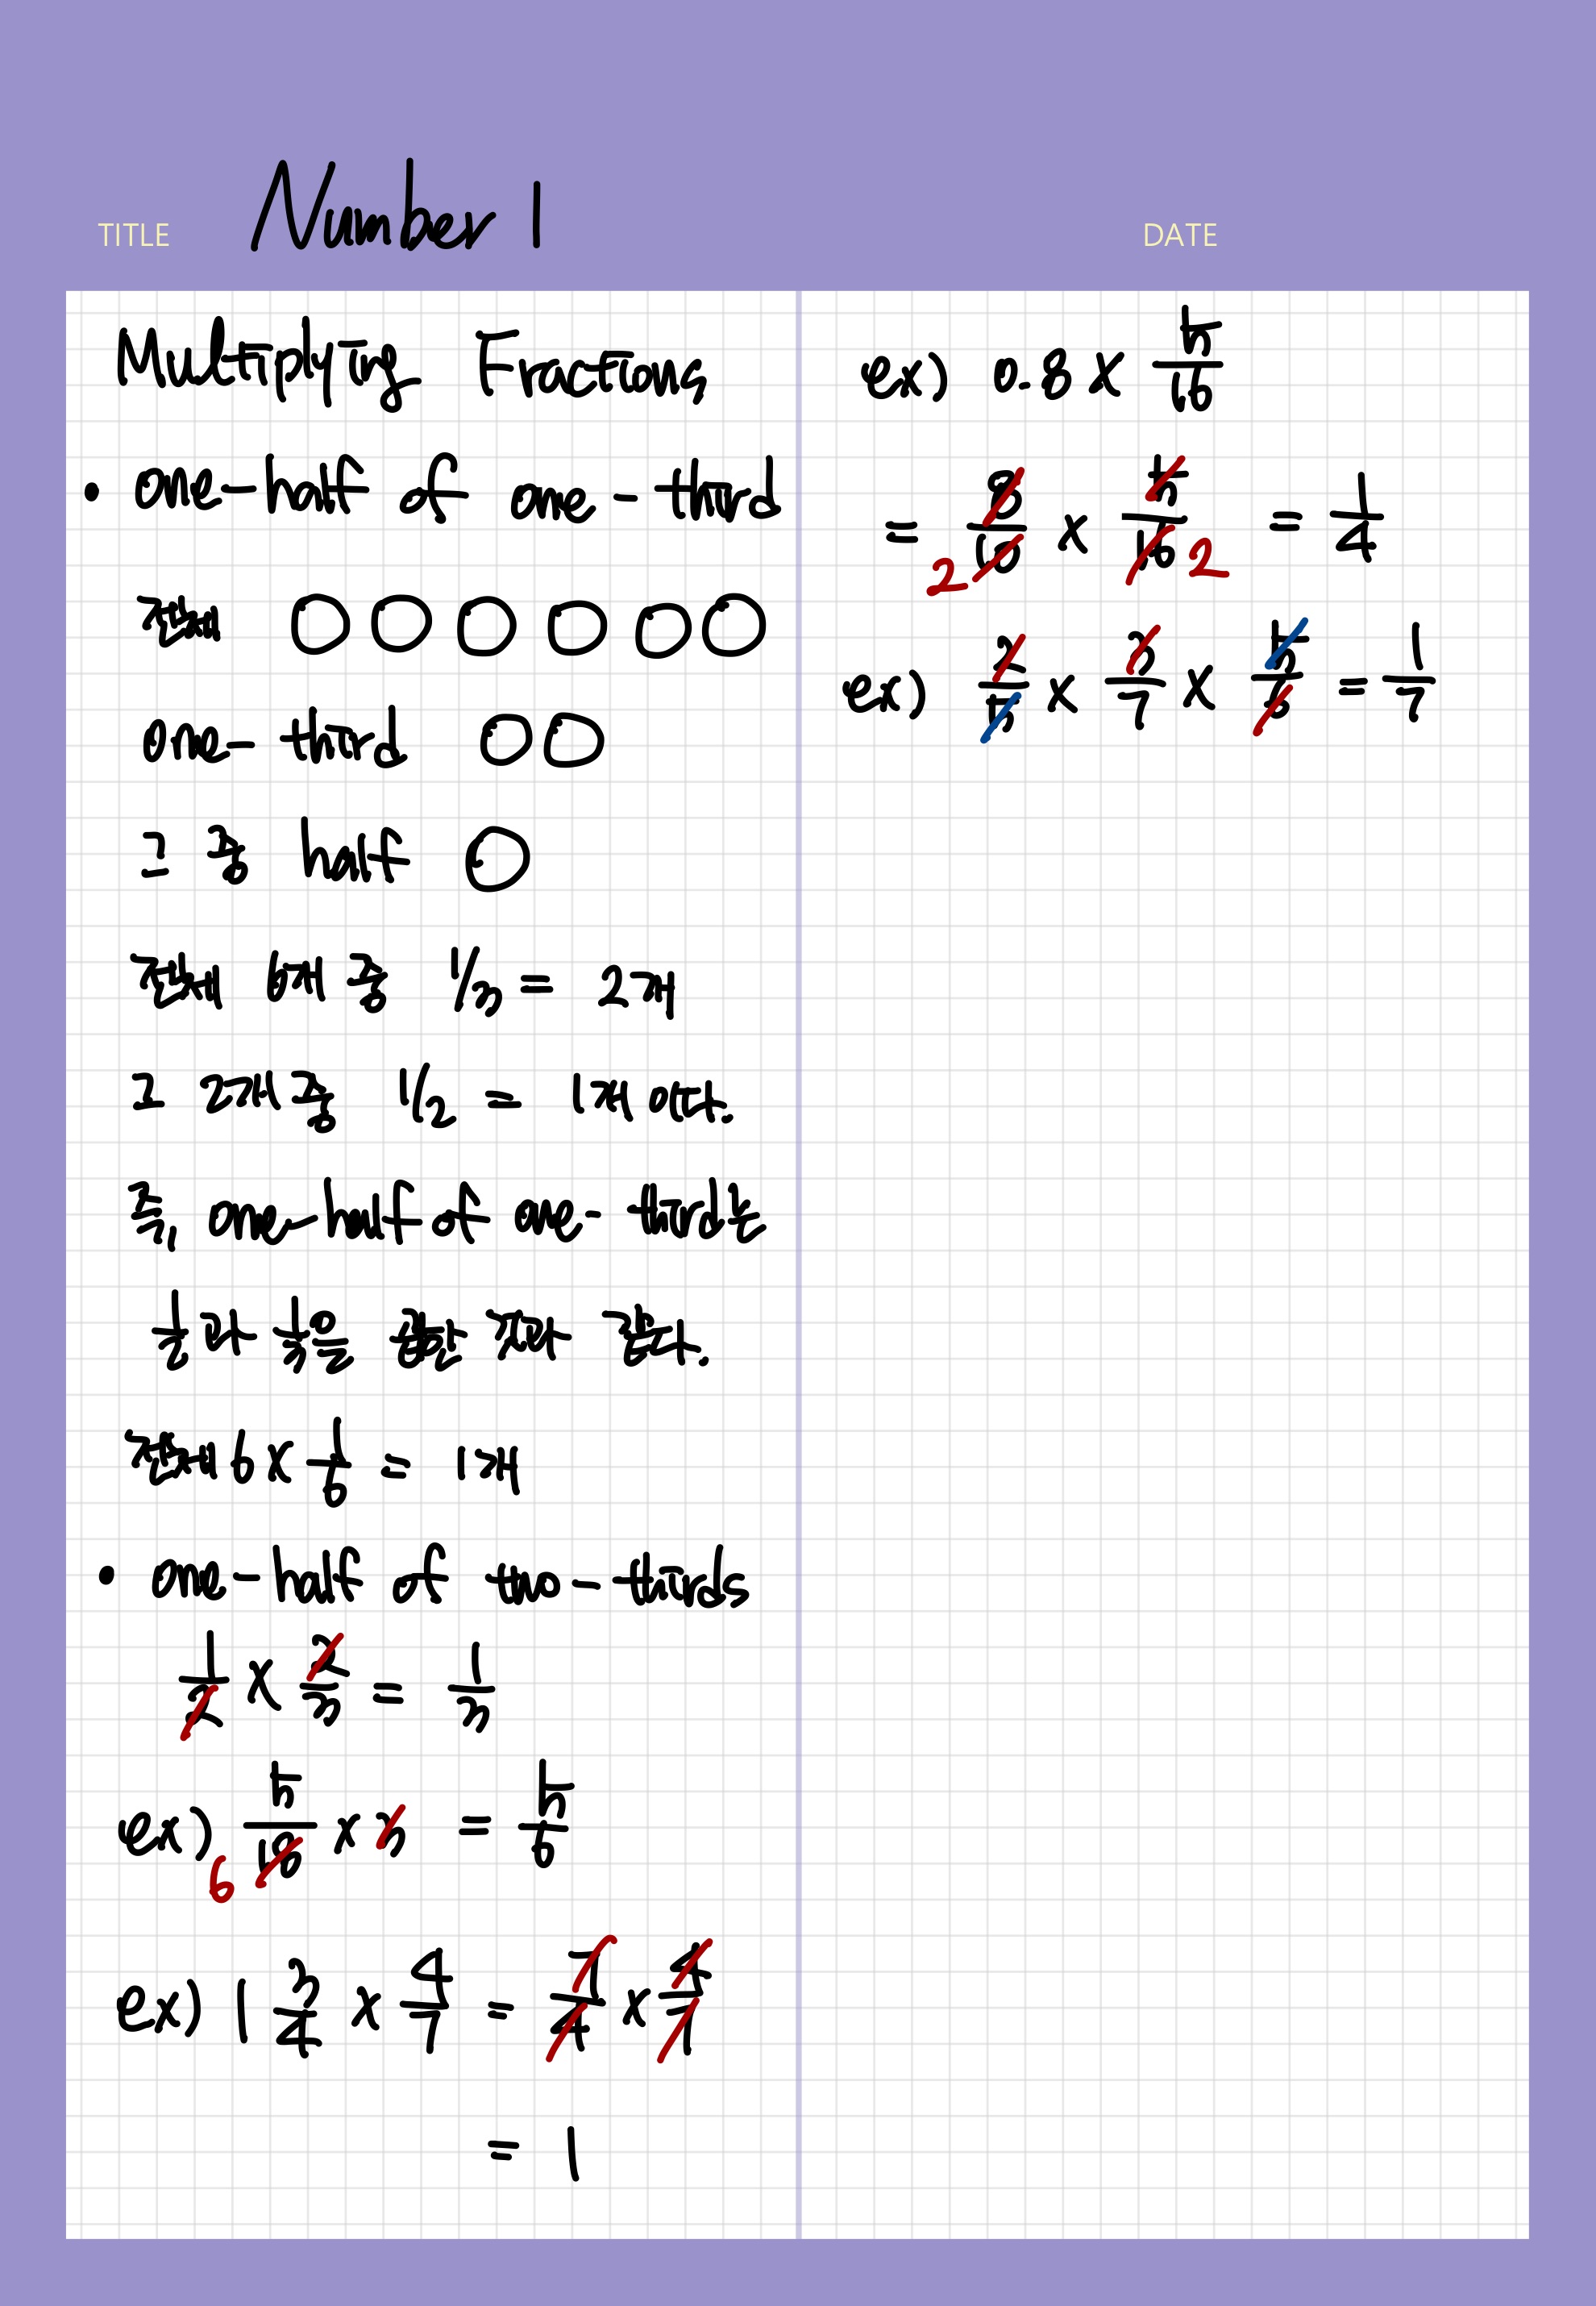 TITLE Number 1 DATE
Multiplying Fractions
• one-half of one-third
전체 ○○○○○○
one-third ○○
그 중 half ○
전체 6개 중 1/3 = 2개
그 2개 중 1/2 = 1개 이다.
즉, one-half of one-third는
1/2 과 1/3을 곱한 것과 같다.
전체 6 × 1/6 = 1개
• one-half of two-thirds
1/2 × 2/3 = 1/3
ex) 5/18 × 3 = 5/6
6
ex) 1 3/4 × 4/7 = 7/4 × 4/7
= 1
ex) 0.8 × 5/16
= 8/10 × 5/16 = 1/4
2 2
ex) 2/5 × 3/7 × 5/6 = 1/7